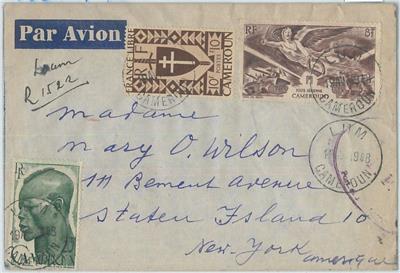 Par Avion
R 1522
FRANCE LIBRE
RF
10F
POSTES
10F
CAMEROUN
RF
8F
POSTE AERIENNE
CAMEROUN
CAMEROUN
LUM
1948
CAMEROUN
Madame
Mary O. Wilson
111 Bement Avenue
Staten Island 10
New York
Amerique
RF
CAMEROUN